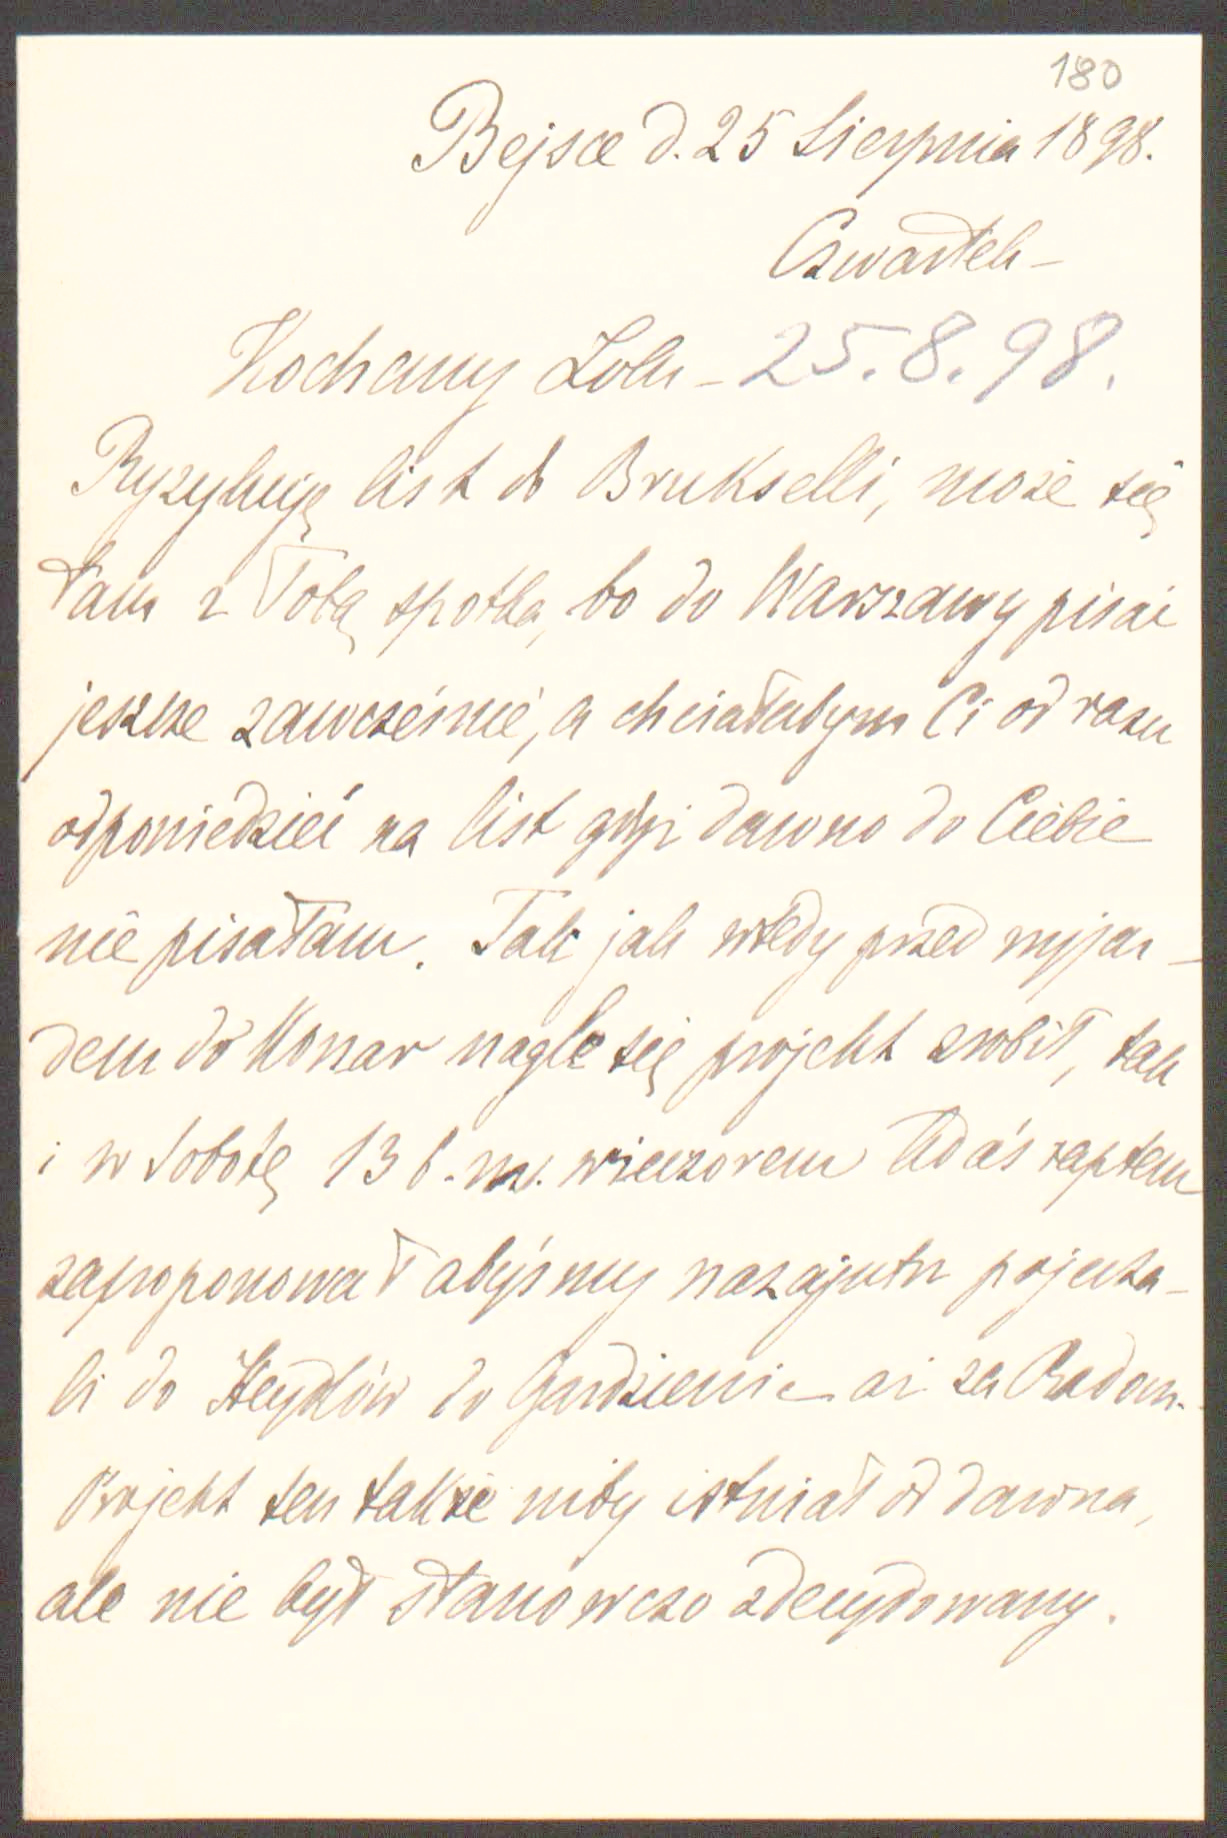 180
Bejsce d. 25 Sierpnia 1898.
Czwartek –
Kochany Lolu –
25.8.98.
Ryzykuję list do Brukselli, może się
tam z Tobą spotka, bo do Warszawy pisać
jeszcze zawcześnie, a chciałabym Ci od razu
odpowiedzieć na list gdyż dawno do Ciebie
nie pisałam. Tak jak wtedy przed wyjaz-
dem do Konar nagle się projekt zrobił, tak
i w Sobotę 13 b.m. wieczorem Adaś raptem
zaproponował abyśmy nazajutrz pojecha-
li do Heydlów do Gardzienic aż za Radom.
Projekt ten także niby istniał od dawna,
ale nie był stanowczo zdecydowany.